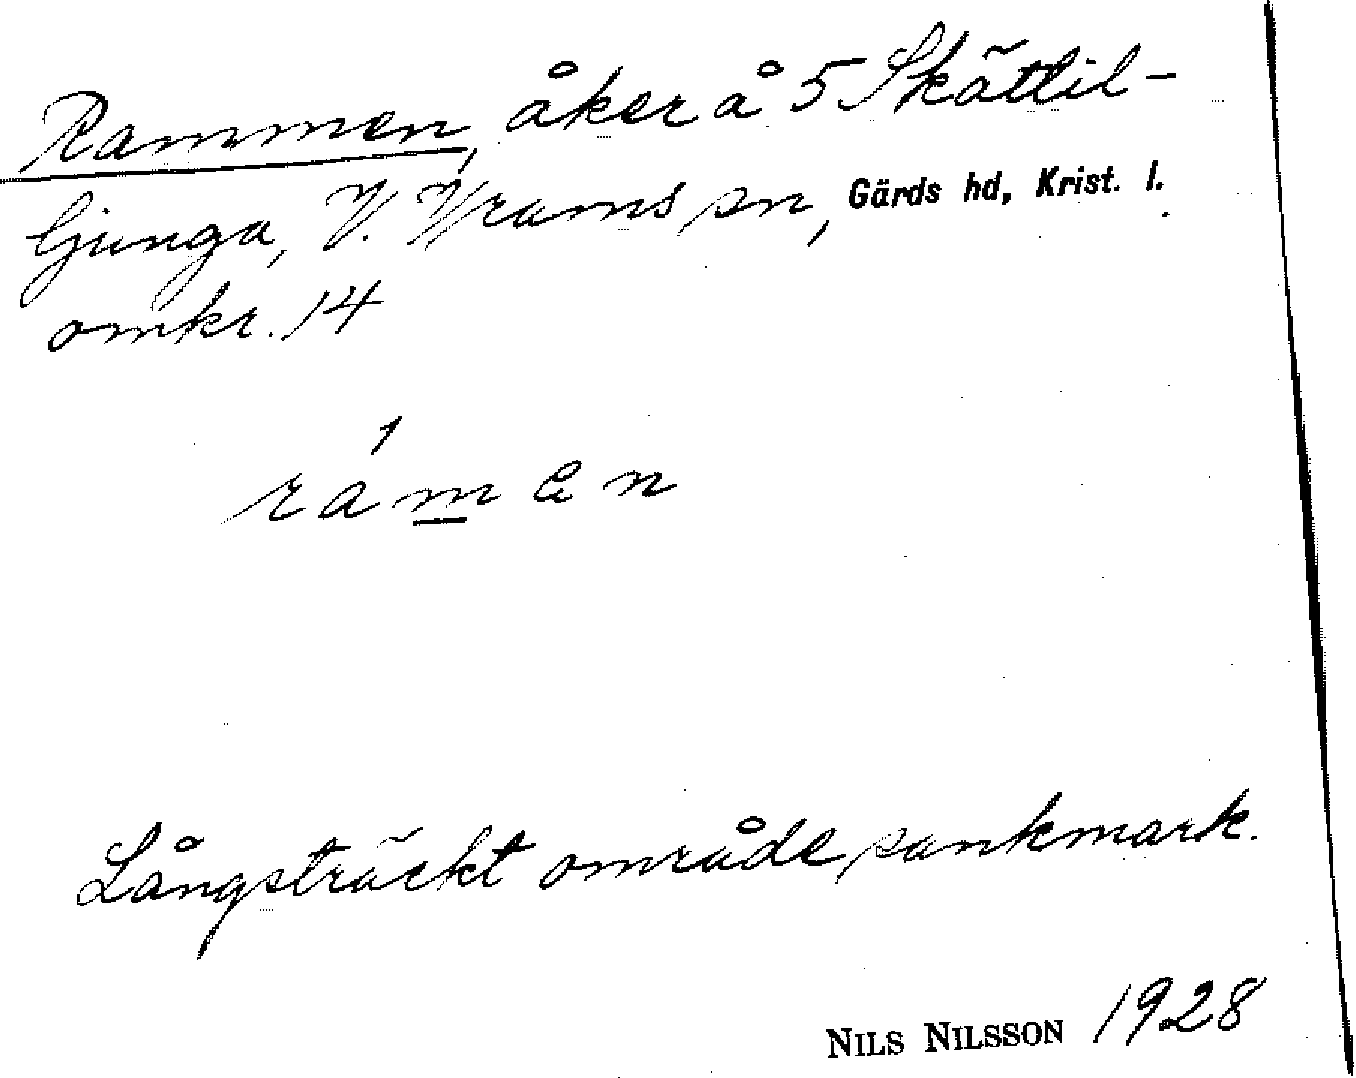 Rammen, åker å 5 Skättil-
ljunga, V. Vrams sn, Gärds hd, Krist. l.
omkr. 14
rámən
Långsträckt område, sankmark.
NILS NILSSON 1928